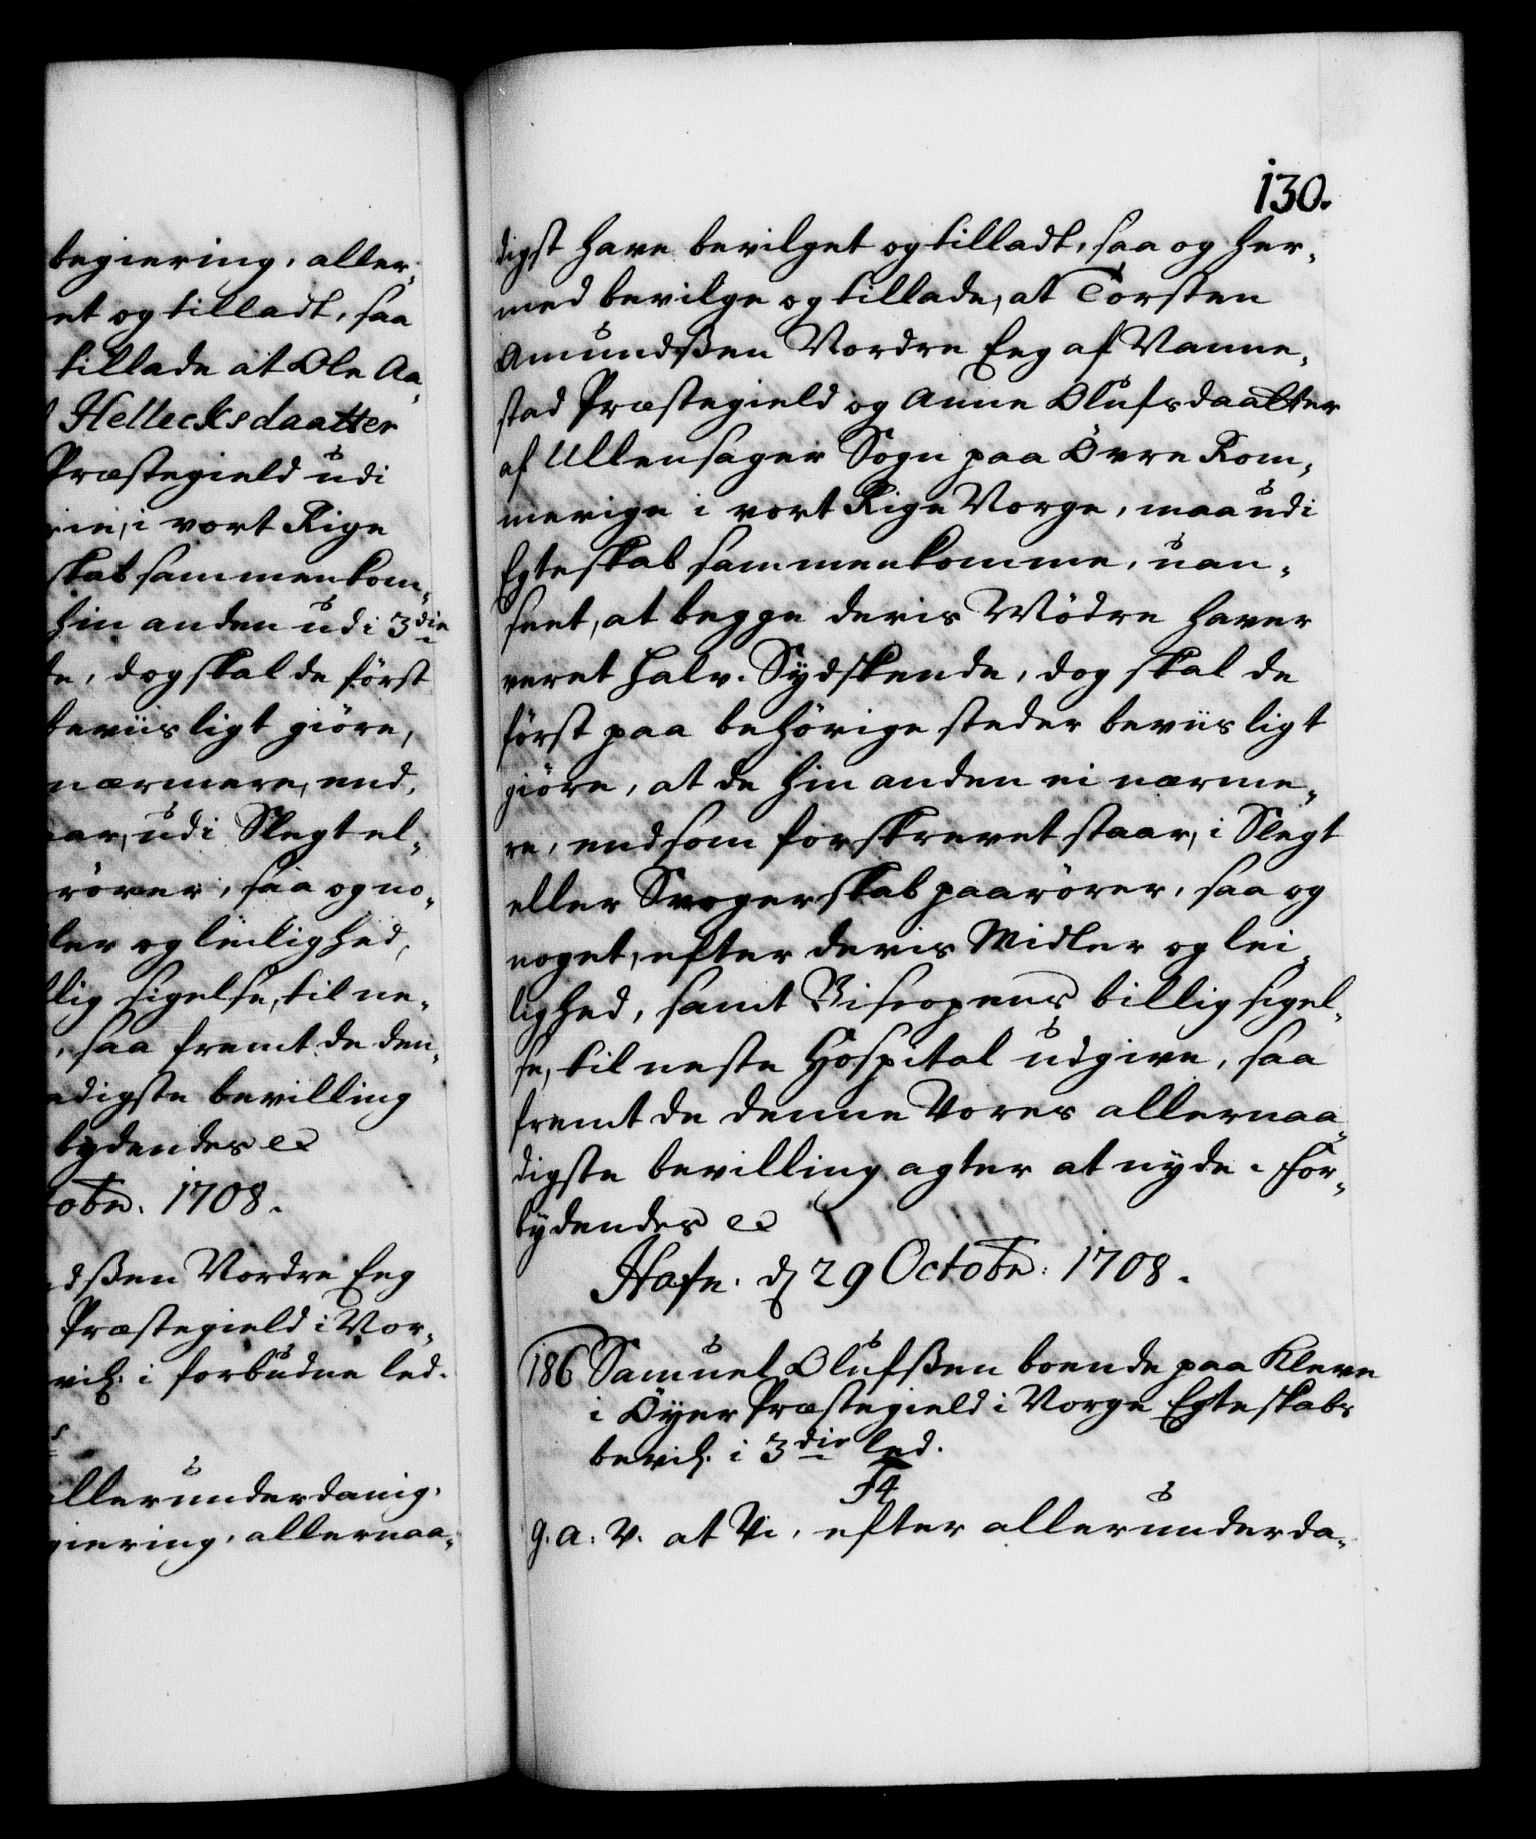 begiering, aller-
et og tilladt, saa
tillade at Ole Aa-
Hellecksdaatter
Præstegield udi
i vort Rige
skab sammenkom-
hinanden udi 3die
dog skal de först
beviisligt giöre,
nærmere, end,
udi Slegt el-
rörer, saa og no-
ler og leilighed,
lig sigelse, til ne-
saa fremt de den-
digste bevilling
bydendes &c
octobr. 1708.
dßen Nordre Eeg
Præstegield i Nor-
bevil. i forbudne led.
allerunderdanig-
giering, allernaa-
130.
digst have bevilget og tilladt, saa og her-
med bevilge og tillade, at Torsten
Amundßen Nordre Eeg af Nanne-
stad Præstegield og Anne Olufsdaatter
af Ullensager Sogn paa Övre Rom-
merige i vort Rige Norge, maa udi
Egteskab sammenkomme, uan-
seet, at begge deris Mödre haver
veret Halv-Sydskende, dog skal de
först paa behörige steder beviisligt
giöre, at de hinanden ei nærme-
re, end som forskrevet staar, i Slegt
eller Svogerskab paarörer, saa og
noget, efter deris Midler og lei-
lighed, samt Biscopens billig sigel-
se, til neste Hospital udgive, saa
fremt de denne Vores allernaa-
digste bevilling agter at nyde. For-
bydendes &c
Hafn. d 29 Octobr: 1708.
186 Samuel Olufßen boende paa Kleve
i Öyer Præstegield i Norge Egteskabs
bevil. i 3die led.
F4
G. A. V. at Vi, efter allerunderda-